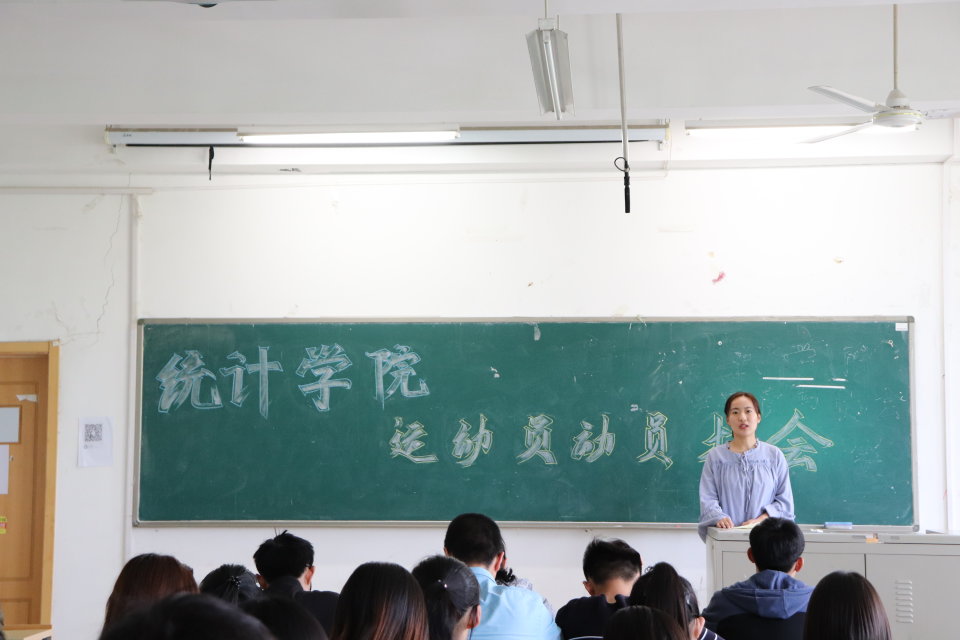 统计学院
运动员动员 会